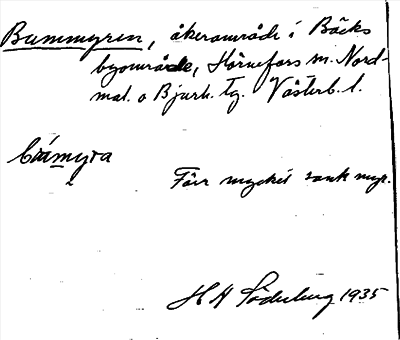 Bummyren, åkerområde i Bäcks
byområde, Hörnefors m. Nord-
mal. o Bjurh. tg. Västerb. l.
Förr mycket sank myr.
H H Söderberg 1935